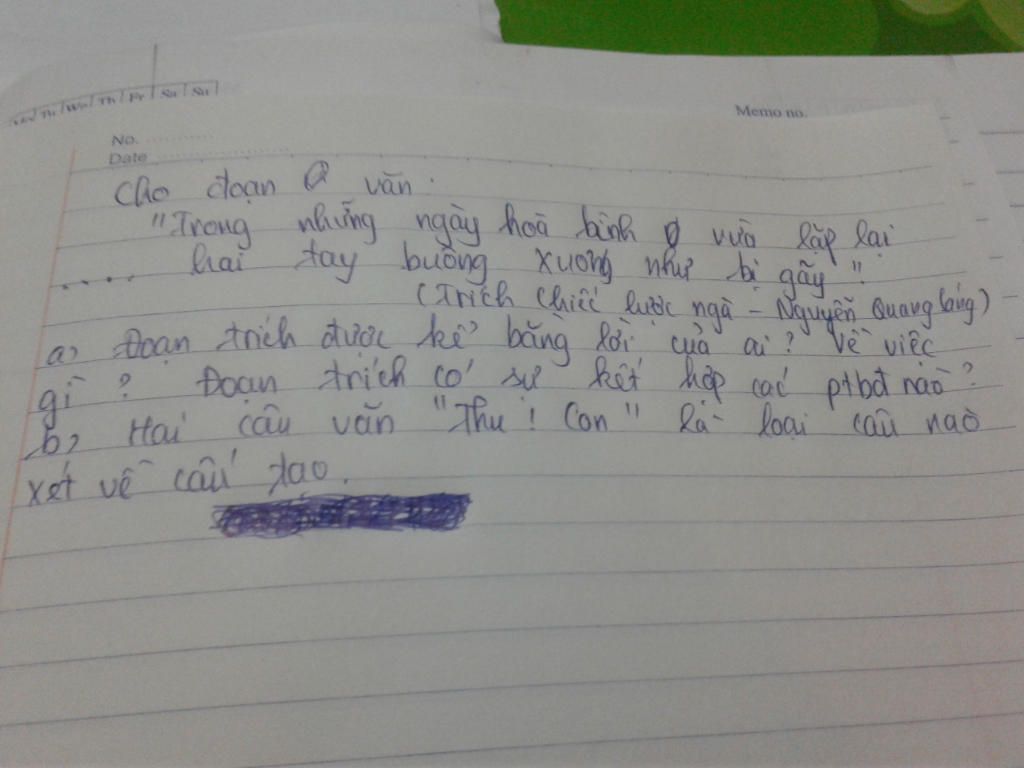 Tu We Th Fr Sa Su
Memo no.
No.
Date
Cho đoạn văn.
"Trong những ngày hoà bình vừa lặp lại
..... hai tay buông xuông như bị gãy"
(Trích Chiếc lược ngà - Nguyễn Quang Sáng)
a, Đoạn trích được kể bằng lời của ai? Về việc
gì? Đoạn trích có sự kết hợp các ptbđ nào?
b, Hai câu văn "Thu! Con" là loại câu nào
xét về cấu tạo.